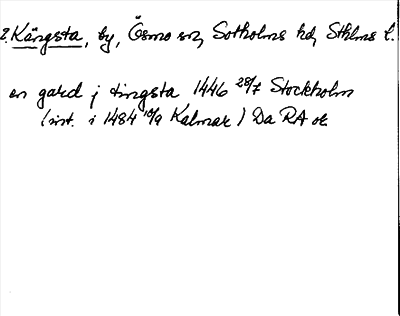 2. Kängsta, by, Ösmo sn, Sotholms hd, Sthlms l.
en gard j tingsta 1446 28/7 Stockholm
(int. i 1484 10/9 Kalmar) Da RA or